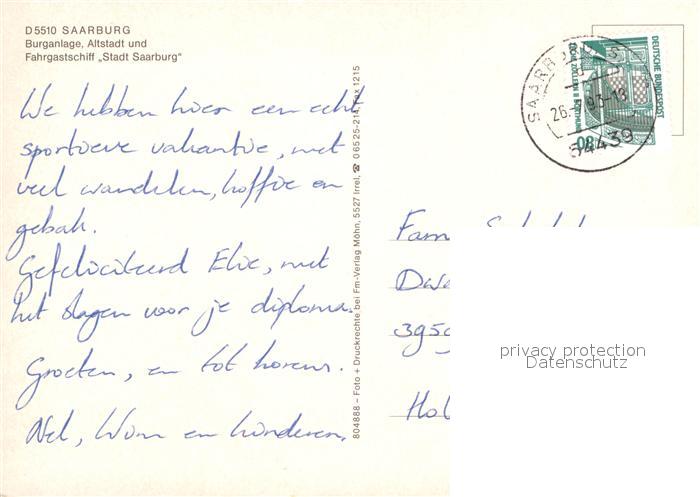 D 5510 SAARBURG
Burganlage, Altstadt und
Fahrgastschiff „Stadt Saarburg"
We hebben hier een echt
sportieve vakantie, met
veel wandelen, koffie en
gebak.
Gefeliciteerd Elie, met
het slagen voor je diploma.
Groeten, en tot horens.
Nel, Wim en kinderen.
804888 – Foto + Druckrechte bei Fm-Verlag Möhn, 5527 Irrel, ☎ 06525-214, Fax 1215
DEUTSCHE BUNDESPOST
80
54439
Fam
395
Hol
privacy protection
Datenschutz